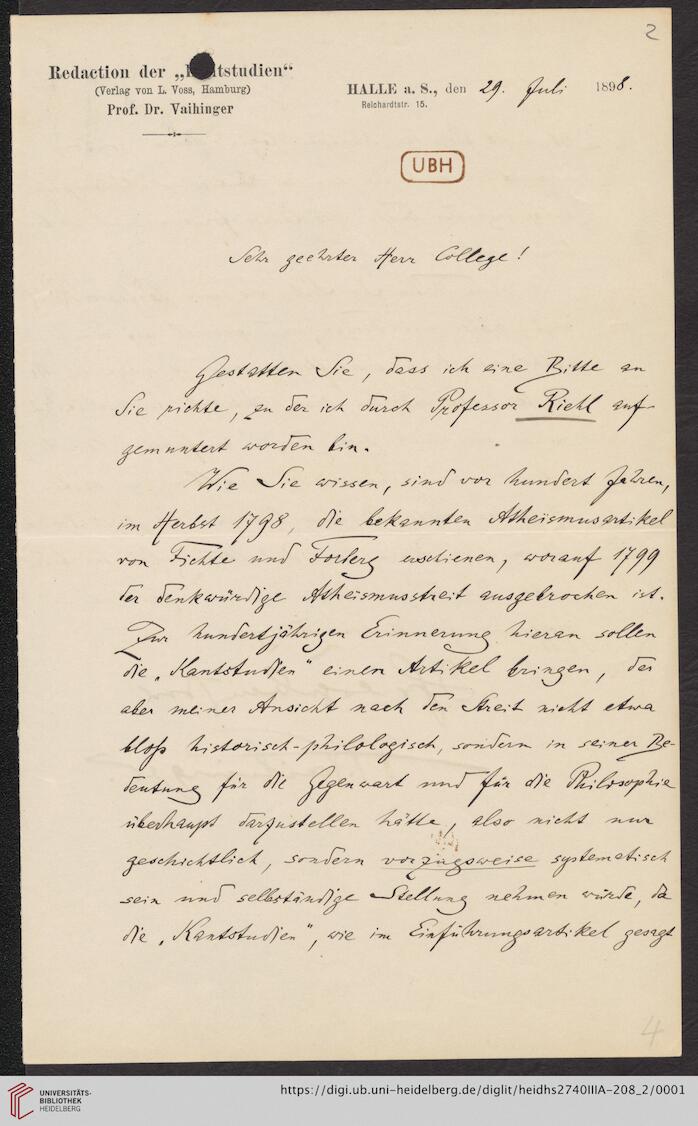 2
Redaction der „Kantstudien“
(Verlag von L. Voss, Hamburg)
Prof. Dr. Vaihinger
HALLE a. S., den 29. Juli 1898.
Reichardtstr. 15.
UBH
Sehr geehrter Herr College!
Gestatten Sie, dass ich eine Bitte an
Sie richte, zu der ich durch Professor Riehl auf-
gemuntert worden bin.
Wie Sie wissen, sind vor hundert Jahren,
im Herbst 1798, die bekannten Atheismusartikel
von Fichte und Forberg erschienen, worauf 1799
der denkwürdige Atheismusstreit ausgebrochen ist.
Zur hundertjährigen Erinnerung hieran sollen
die „Kantstudien“ einen Artikel bringen, der
aber meiner Ansicht nach den Streit nicht etwa
bloß historisch-philologisch, sondern in seiner Be-
deutung für die Gegenwart und für die Philosophie
überhaupt darzustellen hätte, also nicht nur
geschichtlich, sondern vorzugsweise systematisch
sein und selbständige Stellung nehmen würde, da
die „Kantstudien“, wie im Einführungsartikel gesagt
4
UNIVERSITÄTS-
BIBLIOTHEK
HEIDELBERG
https://digi.ub.uni-heidelberg.de/diglit/heidhs2740IIIA-208_2/0001